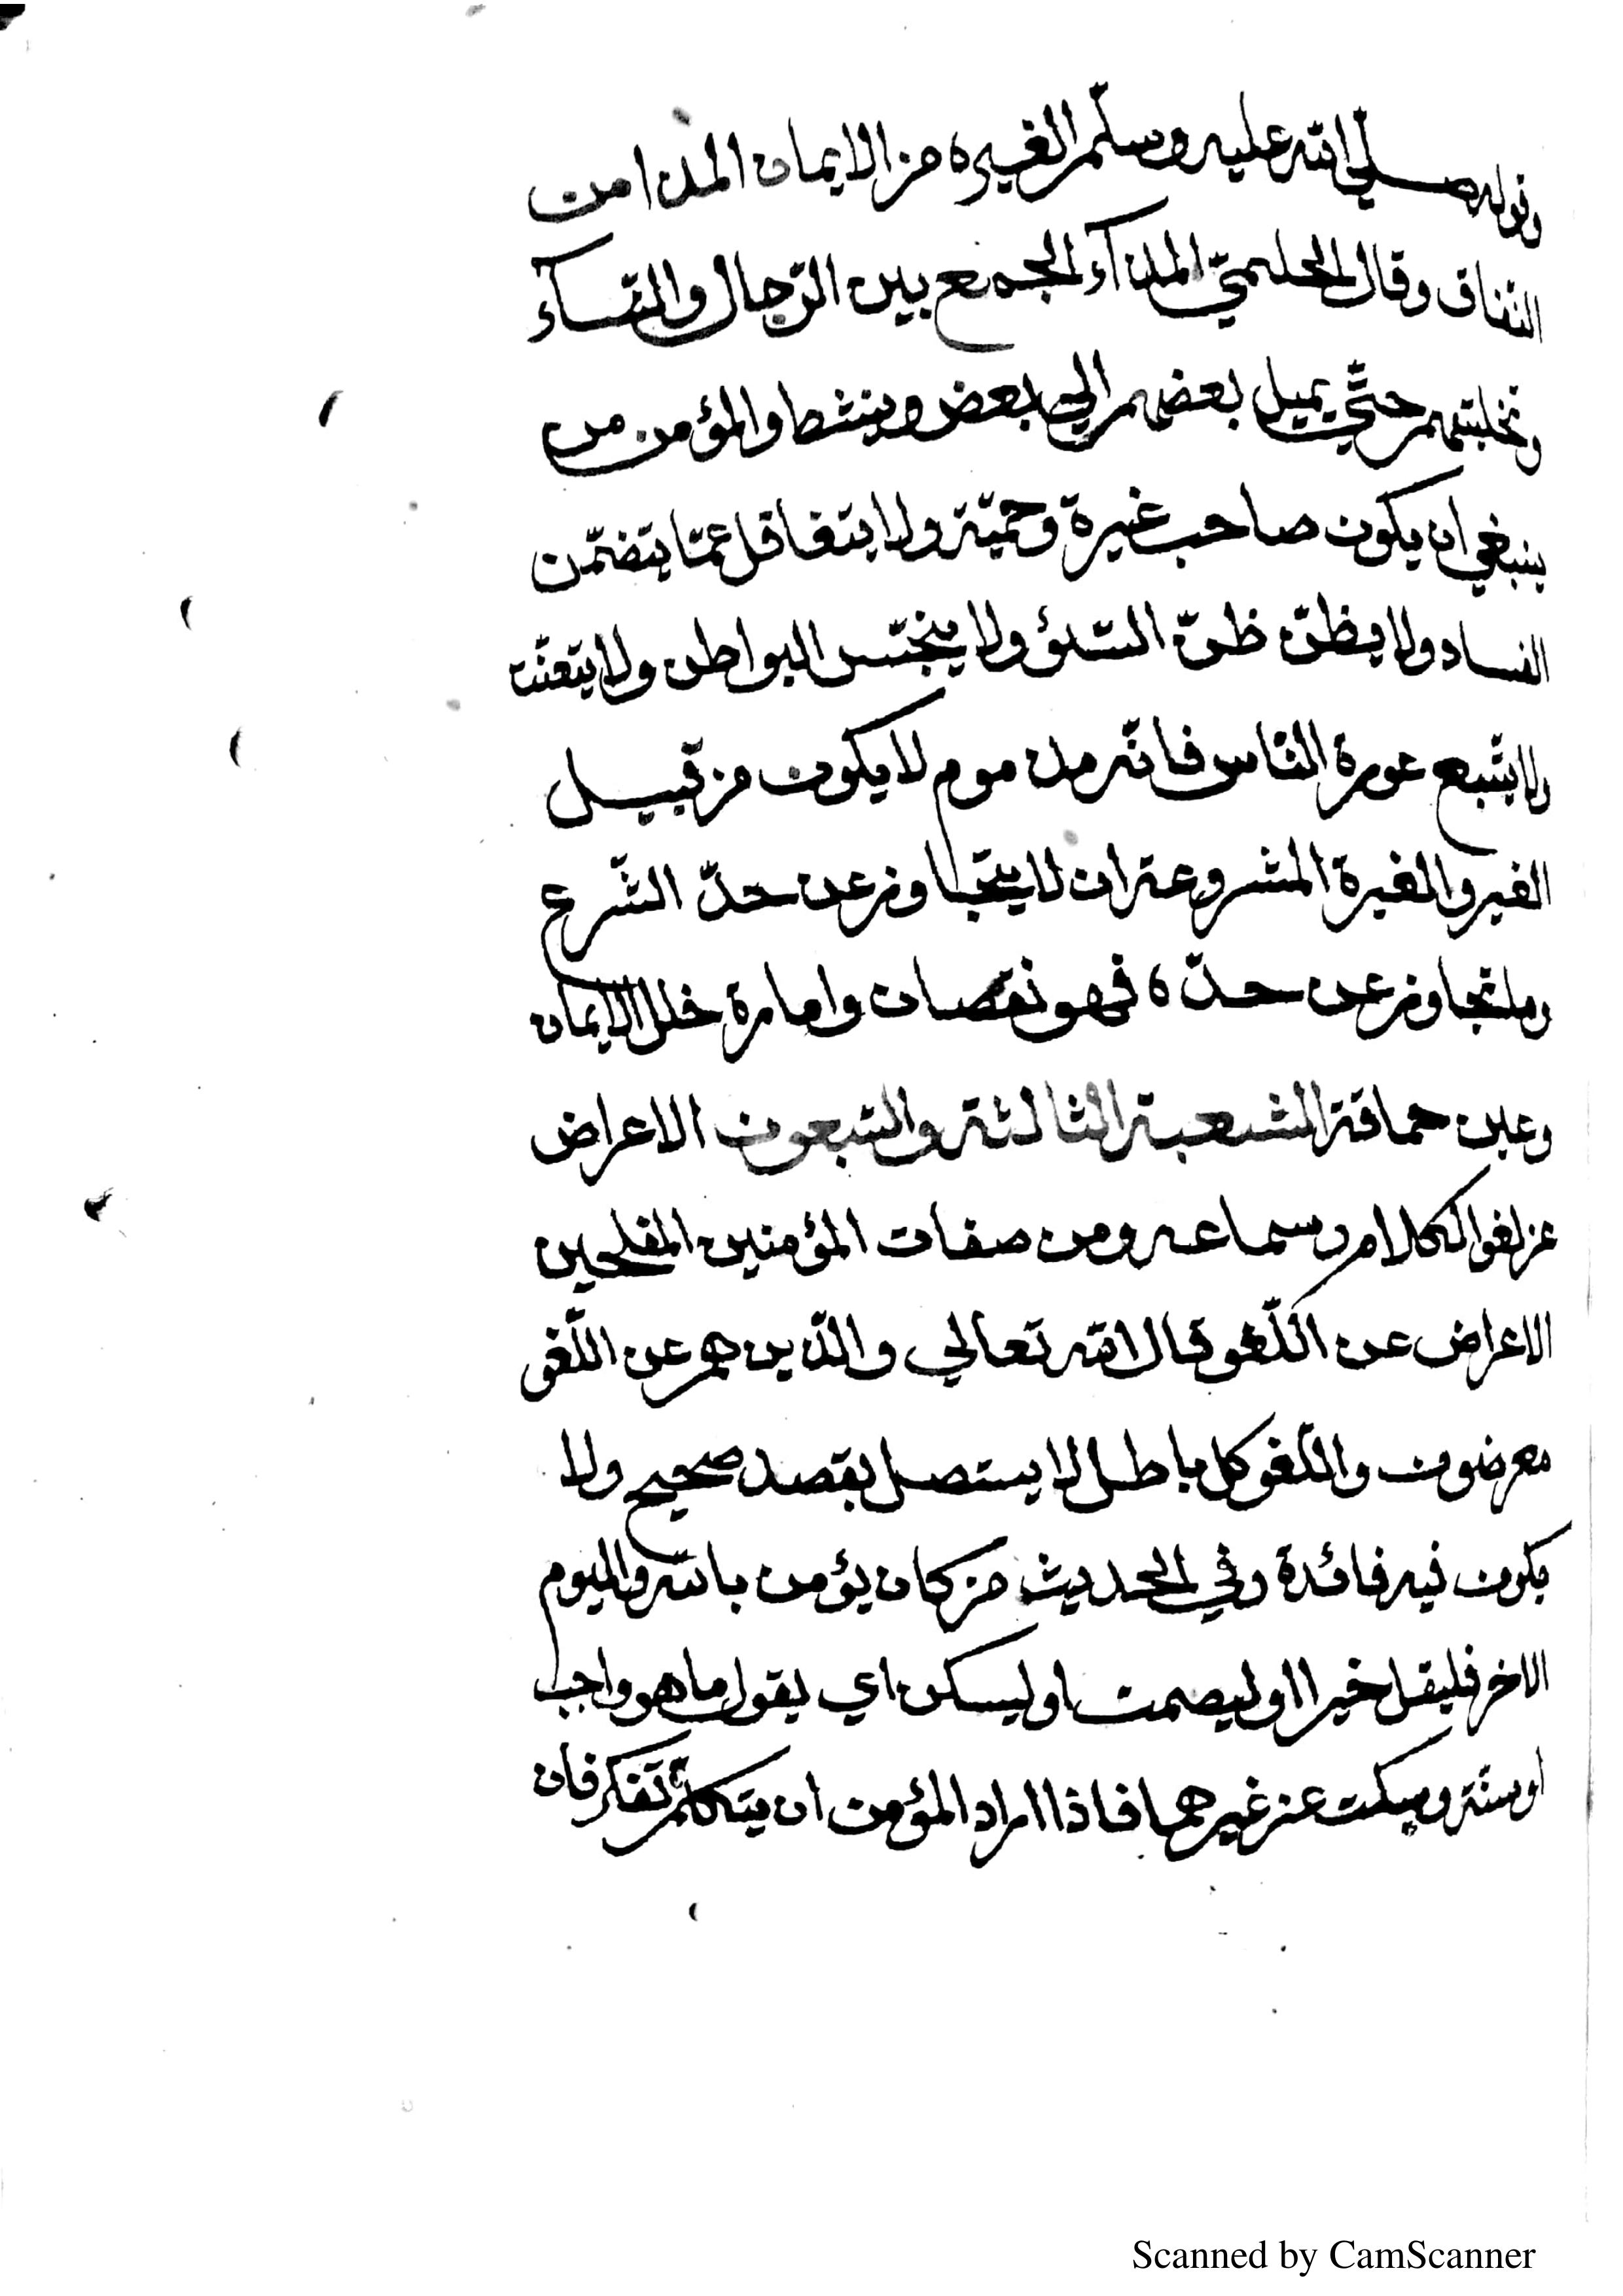 وقوله صلي الله عليه وسلّم الغيره من الايمان المذا من
النفاق وقال الحليميّ المذآء الجمع بين الرّجال والنّسآء
وتخليتهم حتّي يميل بعضهم الي بعض وينشط والمؤمن من
ينبغي ان يكون صاحب غيرة وحميّة ولا يتغافل عمّا يتضمّن
الفساد ولا يظنّ ظنّ السّوء ولا يتجسّس البواطن ولا يتعنّت
ولا يتّبع عورة النّاس فانّه مذموم لا يكون من قبيل
الغير والغيرة المشروعة ان لا يتجاوز عن حدّ الشّرع
وما تجاوز عن حدّه فهو نقصان وامارة خلل الايمان
وعين حماقة الشعبة الثالثة والسّبعون الاعراض
عن لغو الكلام وسماعه ومن صفات المؤمنين المفلحين
الاعراض عن اللّغو قال الله تعالي والّذين هم عن اللّغو
معرضون واللّغو كل باطل لا يتصل بقصد صحيح ولا
يكون فيه فائدة وفي الحديث من كان يؤمن بالله واليوم
الاخر فليقل خيرا او ليصمت او ليسكن اي يقول ما هو واجب
او سنّة ويسكت عن غيرهما فاذا اراد المؤمن ان يتكلّم تفكر فان
Scanned by CamScanner